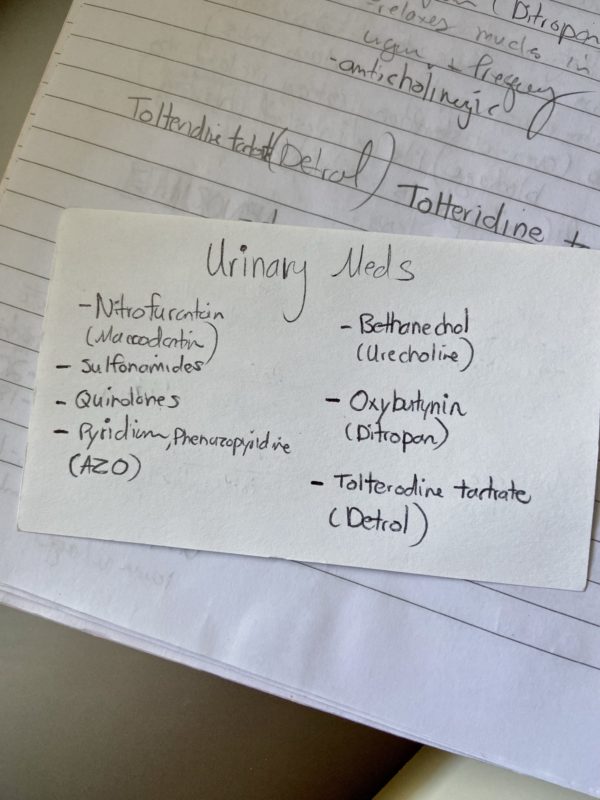 (Ditropan
relaxes muscle in
urgen. + freqency
-anticholinergic
Tolteridine (Detrol)
Tolteridine
Urinary Meds
- Nitrofurantoin
(Macrodantin)
- Sulfonamides
- Quinolones
- Pyridium, Phenazopyridine
(AZO)
- Bethanechol
(Urecholine)
- Oxybutynin
(Ditropan)
- Tolterodine tartrate
(Detrol)